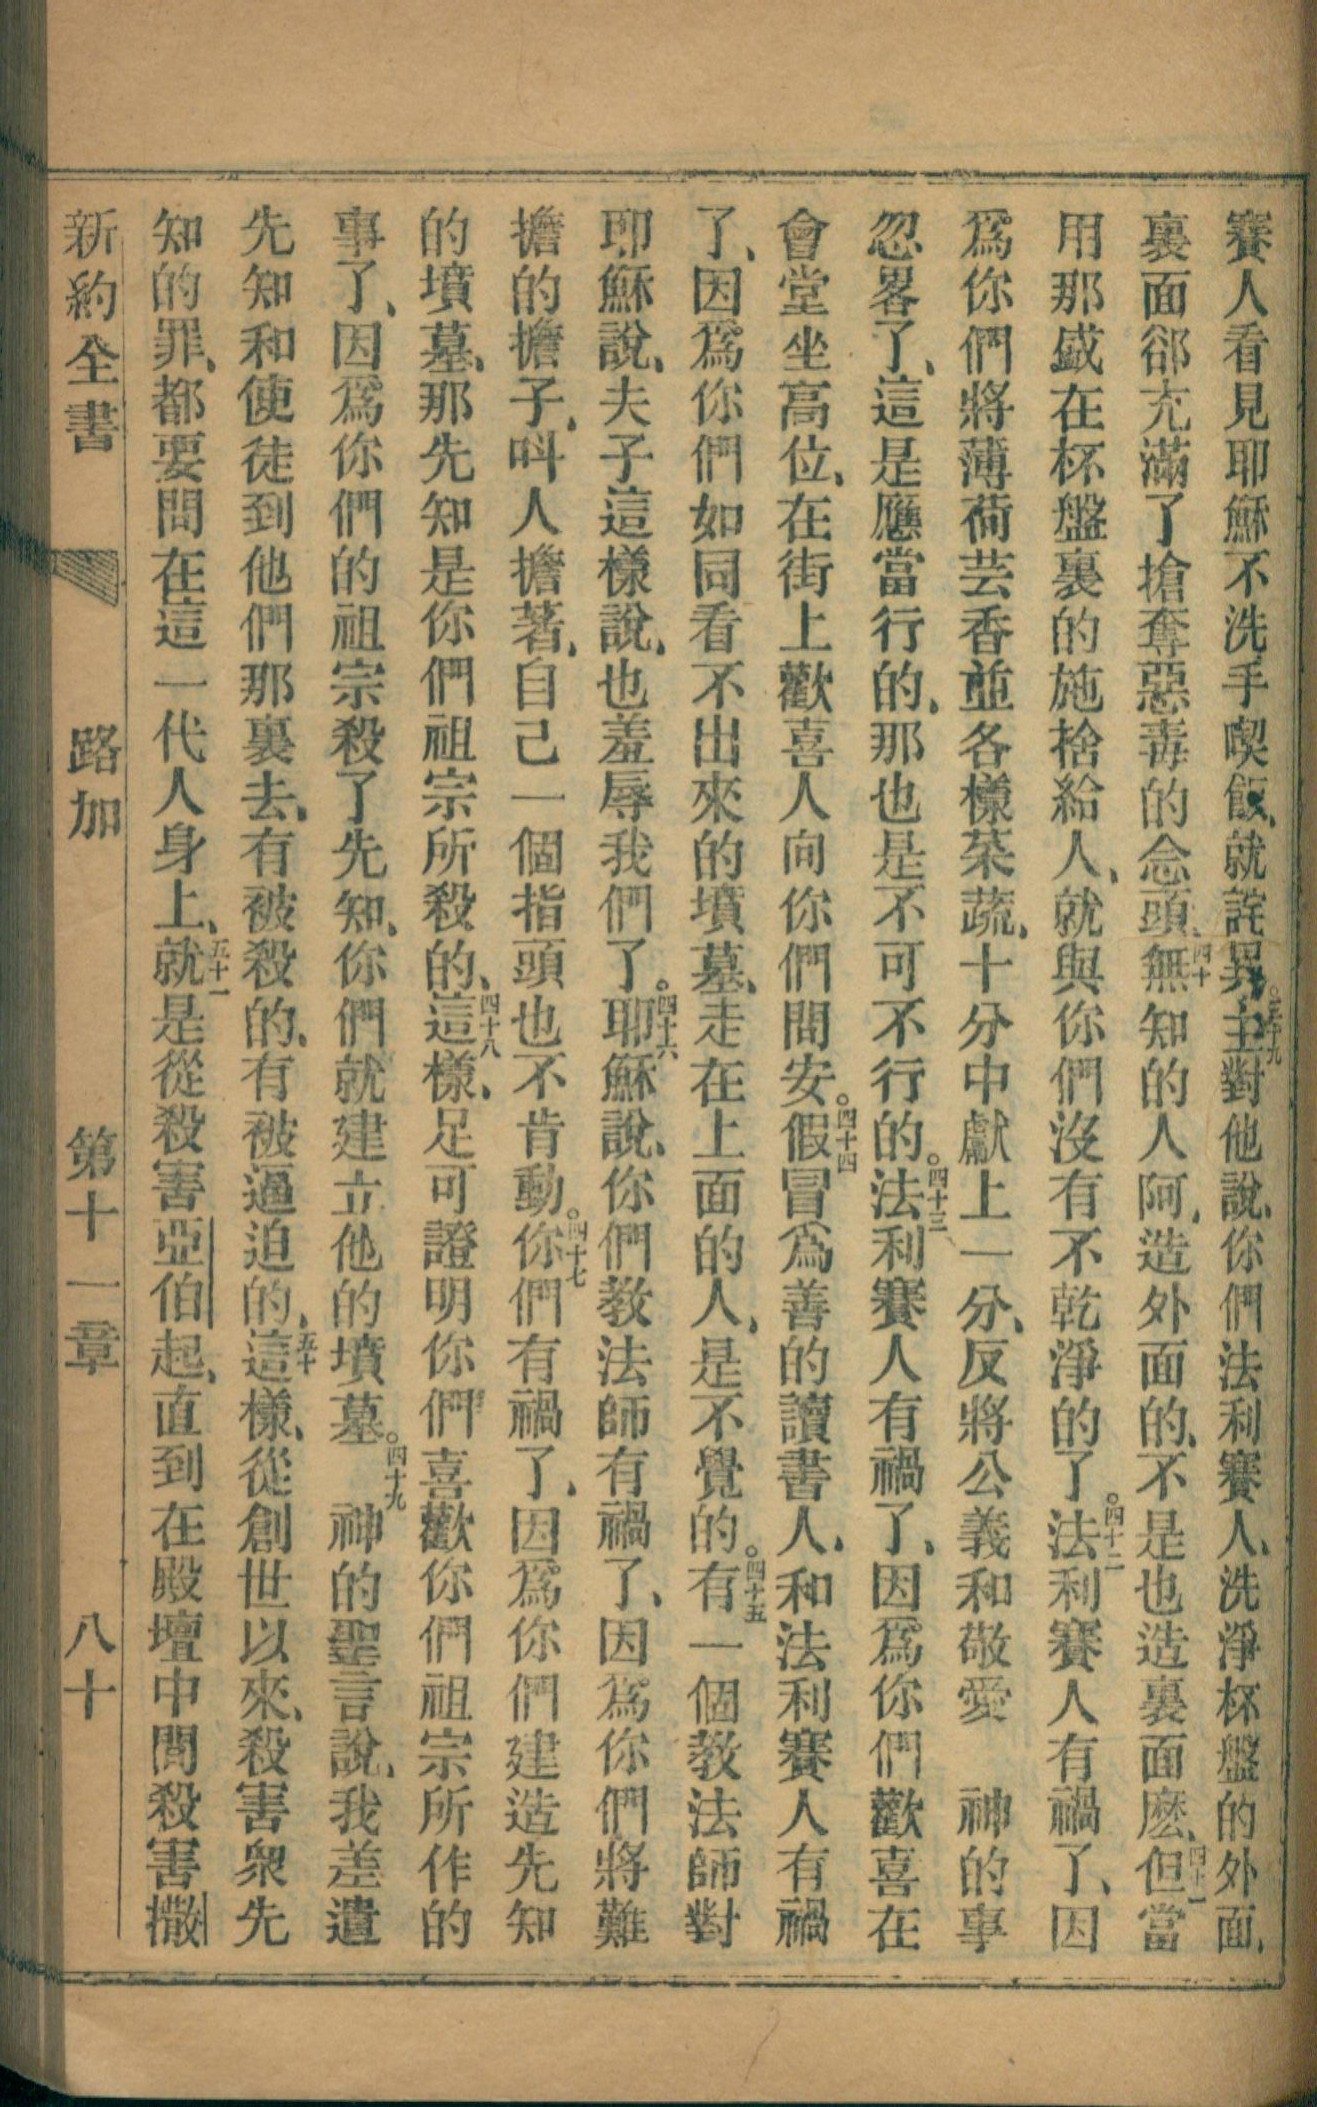 賽人看見耶穌不洗手喫飯、就詫異。三十九主對他說、你們法利賽人、洗淨杯盤的外面、
裏面郤充滿了搶奪惡毒的念頭、四十無知的人阿、造外面的、不是也造裏面麽、四十一但當
用那盛在杯盤裏的施捨給人、就與你們沒有不乾淨的了。四十二法利賽人有禍了、因
爲你們將薄荷芸香並各樣菜蔬、十分中獻上一分、反將公義和敬愛　神的事
忽畧了、這是應當行的、那也是不可不行的。四十三法利賽人有禍了、因爲你們歡喜在
會堂坐高位、在街上歡喜人向你們問安。四十四假冒爲善的讀書人、和法利賽人有禍
了、因爲你們如同看不出來的墳墓、走在上面的人、是不覺的。四十五有一個教法師對
耶穌說、夫子這樣說、也羞辱我們了。四十六耶穌說、你們教法師有禍了、因爲你們將難
擔的擔子、呌人擔著、自己一個指頭也不肯動。四十七你們有禍了、因爲你們建造先知
的墳墓、那先知是你們祖宗所殺的、四十八這樣、足可證明你們喜歡你們祖宗所作的
事了、因爲你們的祖宗殺了先知、你們就建立他的墳墓。四十九　神的聖言說、我差遣
先知和使徒到他們那裏去、有被殺的、有被逼迫的、五十這樣、從創世以來、殺害衆先
知的罪、都要問在這一代人身上、五十一就是從殺害亞伯起、直到在殿壇中間殺害撒
新約全書　路加　第十一章　八十